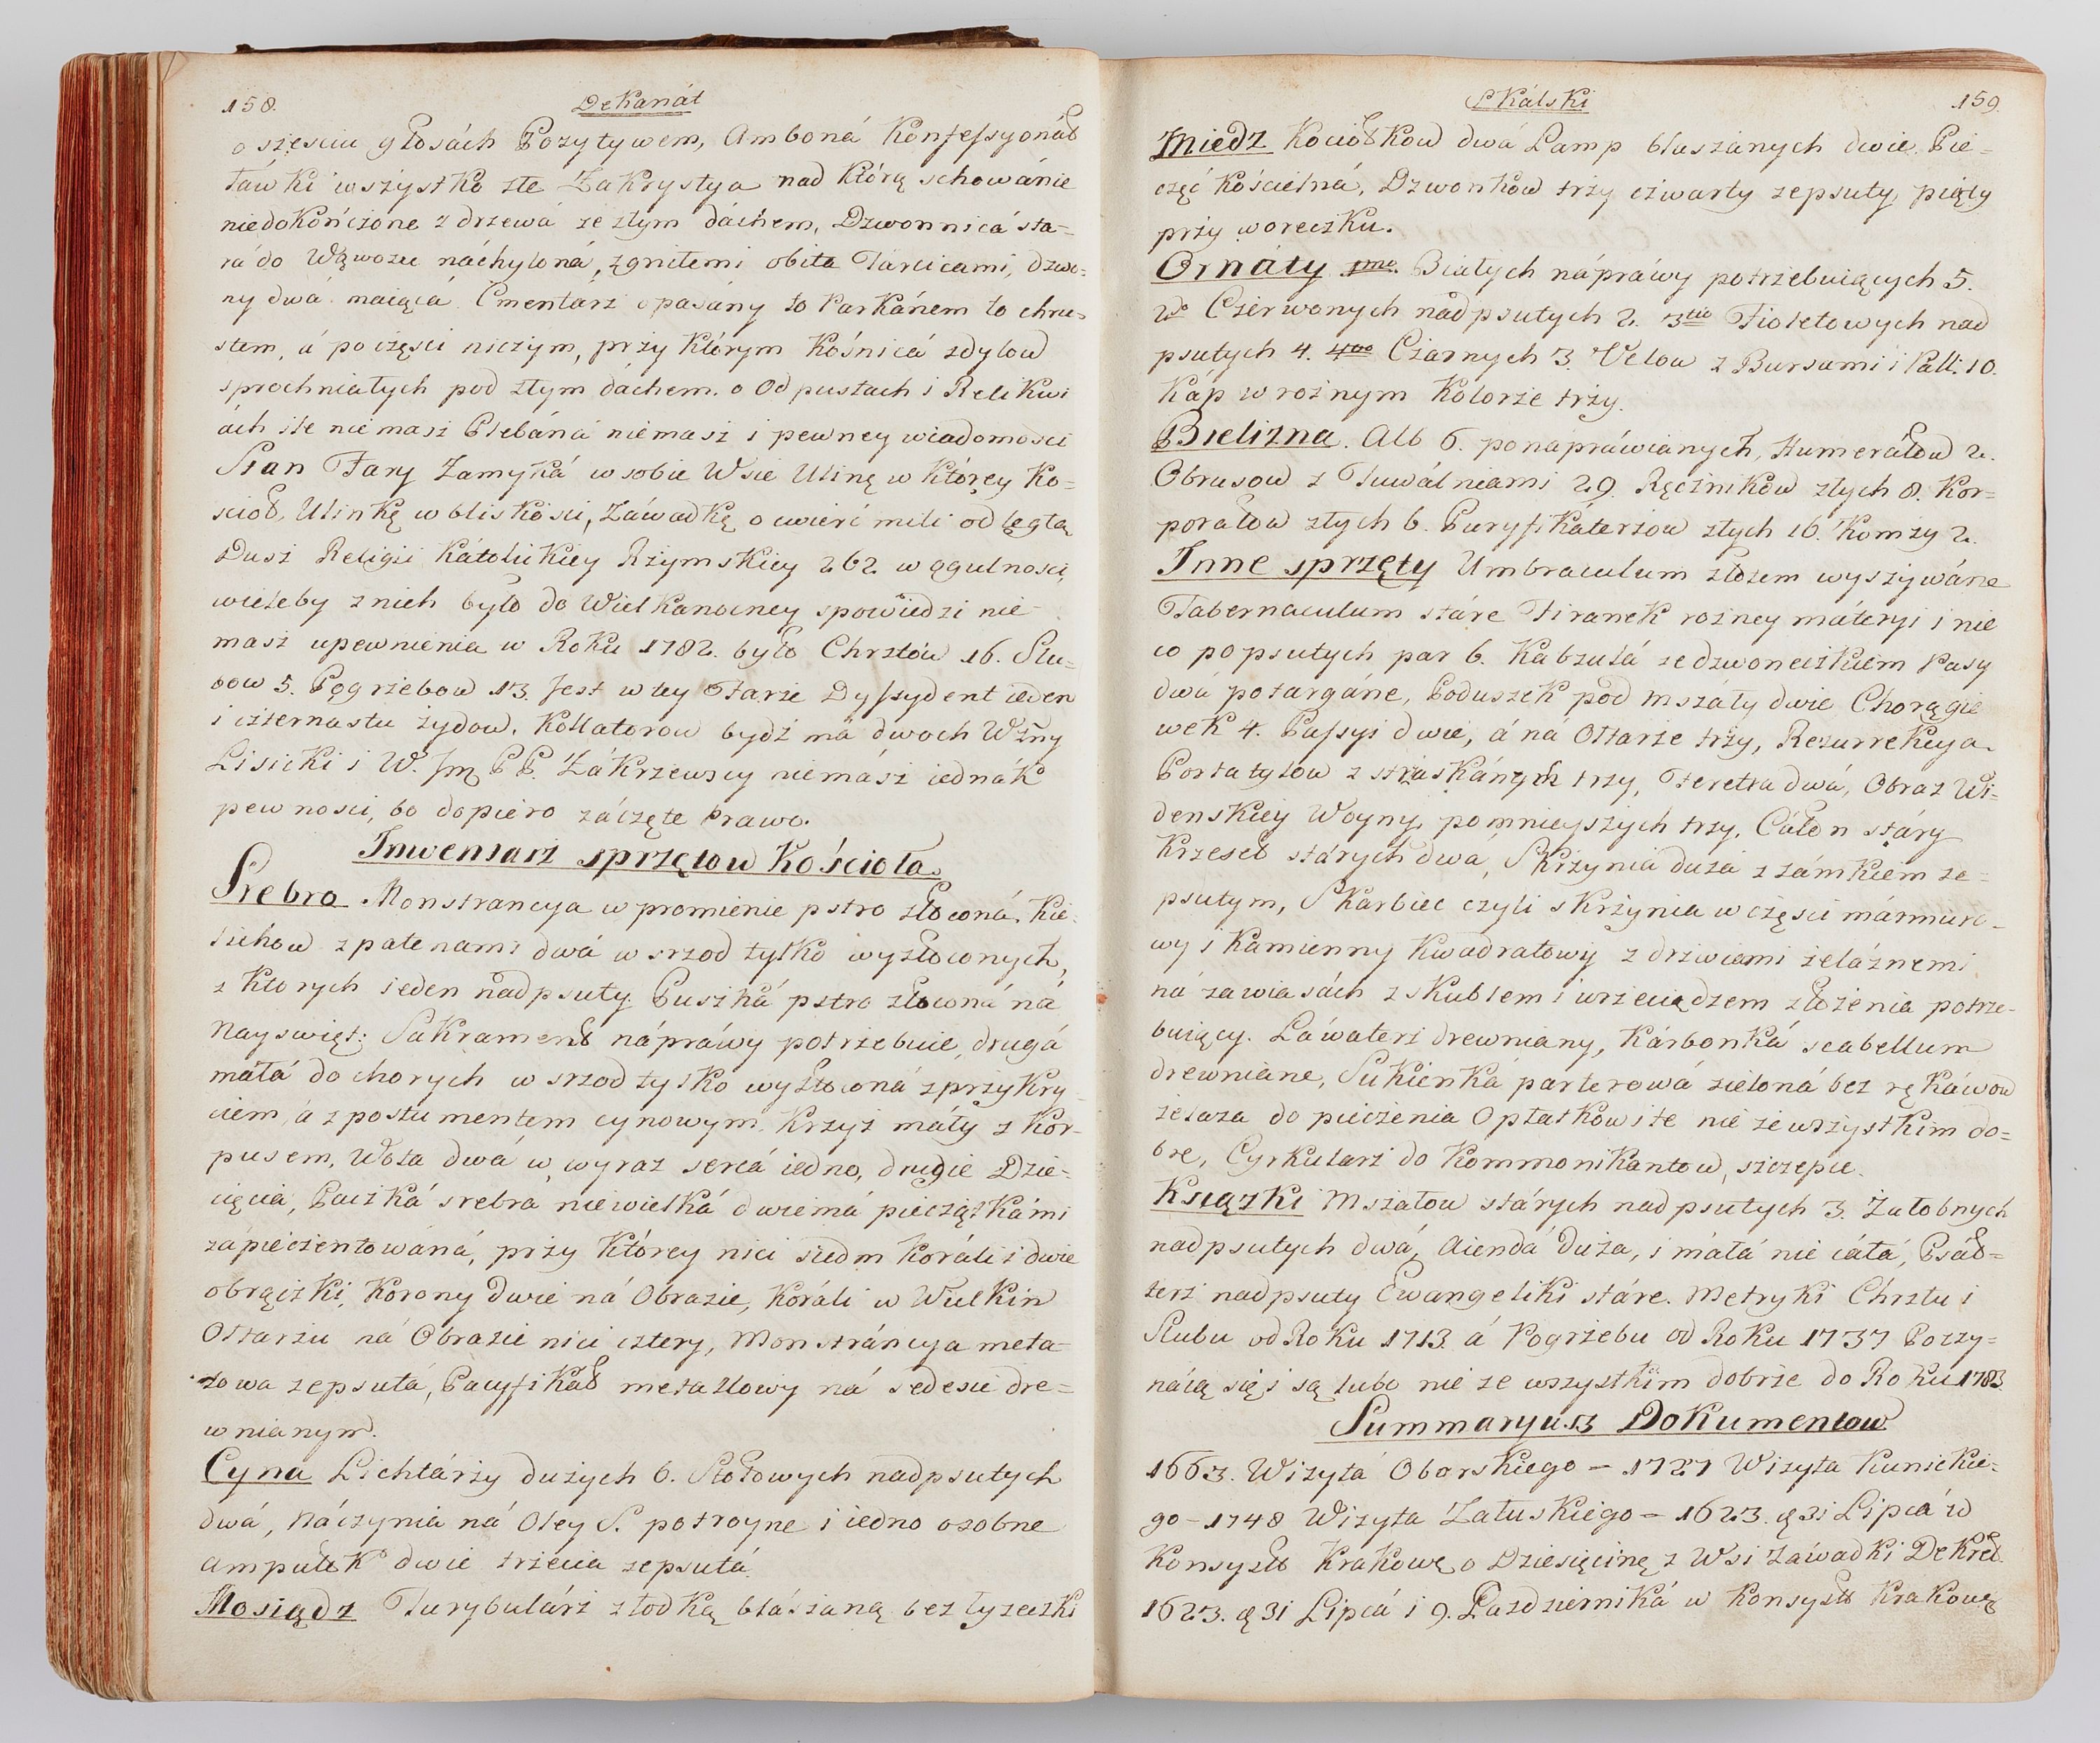 158.
Dekanát
o sześciu głosách Pozytywem, Amboná Konfessyonáł
ławki wszystko złe Zakrystya nad którą schowánie
niedokończone z drzewá ze złym dáchem, Dzwonnicá sta=
rá do Wąwozu náchyloná, zgniłemi obita Tarcicami, dzwo=
ny dwá maiącá. Cmentárz opasány to Parkánem to chru=
stem, á po części niczym, przy którym Kośnicá zdylow
sprochniałych pod złym dáchem. o Odpustach i Relikwi
ách ile niemasz Plebáná niemasz i pewney wiadomości
Stan Fary Zamyká w sobie Wsie Ulinę w którey Ko=
scioł, Ulinkę w bliskości, Záwadkę o cwierć mili odległą
Dusz Religii Kátolickiey Rzymskiey 262 w ogulności
wieleby z nich było do Wielkanocney spowiedzi nie
masz upewnienia w Roku 1782. było Chrztów 16. Slu=
bow 5. Pogrzebow 13. Jest w tey Farze Dyssydent ieden
i czternastu żydow. Kollatorow bydź má dwoch Wżny
Lisicki i W. Jmę PP. Zákrzewscy niemász iednák
pewnosci, bo dopiero záczęte Prawo.
Inwentarz sprzętow Kościoła.
Srebro. Monstrancya w promienie pstro złoconá. Kie
lichow z patenami dwá w srzod tylko wyzłoconych,
z ktorych ieden nádpsuty. Puszká pstro złoconá ná
Nayswięt: Sakrament nápráwy potrzebuie, drugá
małá do chorych w srzod tylko wyzłoconá z przykry
ciem, á z postumentem cynowym. Krzyż máły z Kor=
pusem, Wota dwa w wyraz sercá iedno, drugie Dzie=
cięcia, Paczká srebra niewielká dwiemá pieczątkámi
zápieczentowáná, przy którey nici siedm koráli i dwie
obrączki, Korony dwie ná Obrazie, Koráli w Wielkin
Ołtarzu ná Obrazie nici cztery, Monstráncya meta=
lowa zepsutá, Pacyfikáł metallowy ná sedesie dre=
wnianym.
Cyna Lichtárzy dużych 6. Stołowych nadpsutych
dwá, Náczynia ná Oley S. potroyne i iedno osobne
ampułek dwie trzecia zepsutá.
Mosiądz Turybulárz z łodką blászaną bez łyzeczki
Skálski
159.
Miedz Kociołkow dwá Lamp blaszánych dwie. Pie=
częć kościelná, Dzwonków trzy czwarty zepsuty, piąty
przy woreczku.
Ornáty 1mo. Białych nápráwy potrzebuiących 5.
2do Czerwonych nádpsutych 2. 3tio Fioletowych nad
psutych 4. 4to Czarnych 3. Velow z Bursami i Pall: 10.
Káp w rożnym Kolorze trzy.
Bielizna. Alb 6. ponapráwianych, Humeráłow 2.
Obrusow z Tuwálniami 29. Ręczników złych 8. Kor=
porałow złych 6. Puryfikáterzow złych 16. Komży 2.
Inne sprzęty Umbraculum złotem wyszywáne
Tabernaculum stáre Firanek rożney máteryi i nie
co popsutych par 6. Kabzułá ze dzwoneczkiem Pasy
dwá potargáne, Poduszek pod mszáły dwie Chorągie
wek 4. Passyi dwie, á ná Ołtarze trzy, Rezurrekcya.
Portatylow z strzaskánym trzy, Feretra dwá, Obraz Wi=
denskiey Woyny, pomnieyszych trzy. Całon stáry
Krzeseł stárych dwá, Skrzynia duża z zámkiem ze=
psutym, Skarbiec czyli skrzynia w części mármuro=
wy i kamienny kwadratowy z drzwiami żeláznemi
ná zawiasách z skublem i wrzeciądzem złożenia potrze=
buiący. Lawaterz drewniany, Kárbonká scabellum
drewniane, Sukienká parterowá zieloná bez rękáwow
żelaza do pieczenia Opłatków ile nie ze wszystkim do=
bre, Cyrkularz do Kommonikantow, szczepce.
Ksiązki Mszałow stárych nadpsutych 3. Załobnych
nadpsutych dwá, Aiendá Duża, i máłá nie cáłá, Psáł=
terz nadpsuty Ewangeliki stáre. Metryki Chrztu i
Slubu od Roku 1713. á Pogrzebu od Roku 1737 Poczy=
náią się i są lubo nie ze wszystkim dobrze do Roku 1783
Summaryusz Dokumentow
1663. Wizytá Oborskiego – 1727 Wizyta Kunickie=
go – 1748 Wizyta Załuskiego – 1623. d 31 Lipcá w
Konsyst Krakowę o Dziesięcinę z Wsi Záwadki Dekret.
1623. d 31 Lipcá i 9. Pazdziernika w Konsyst Krakowę